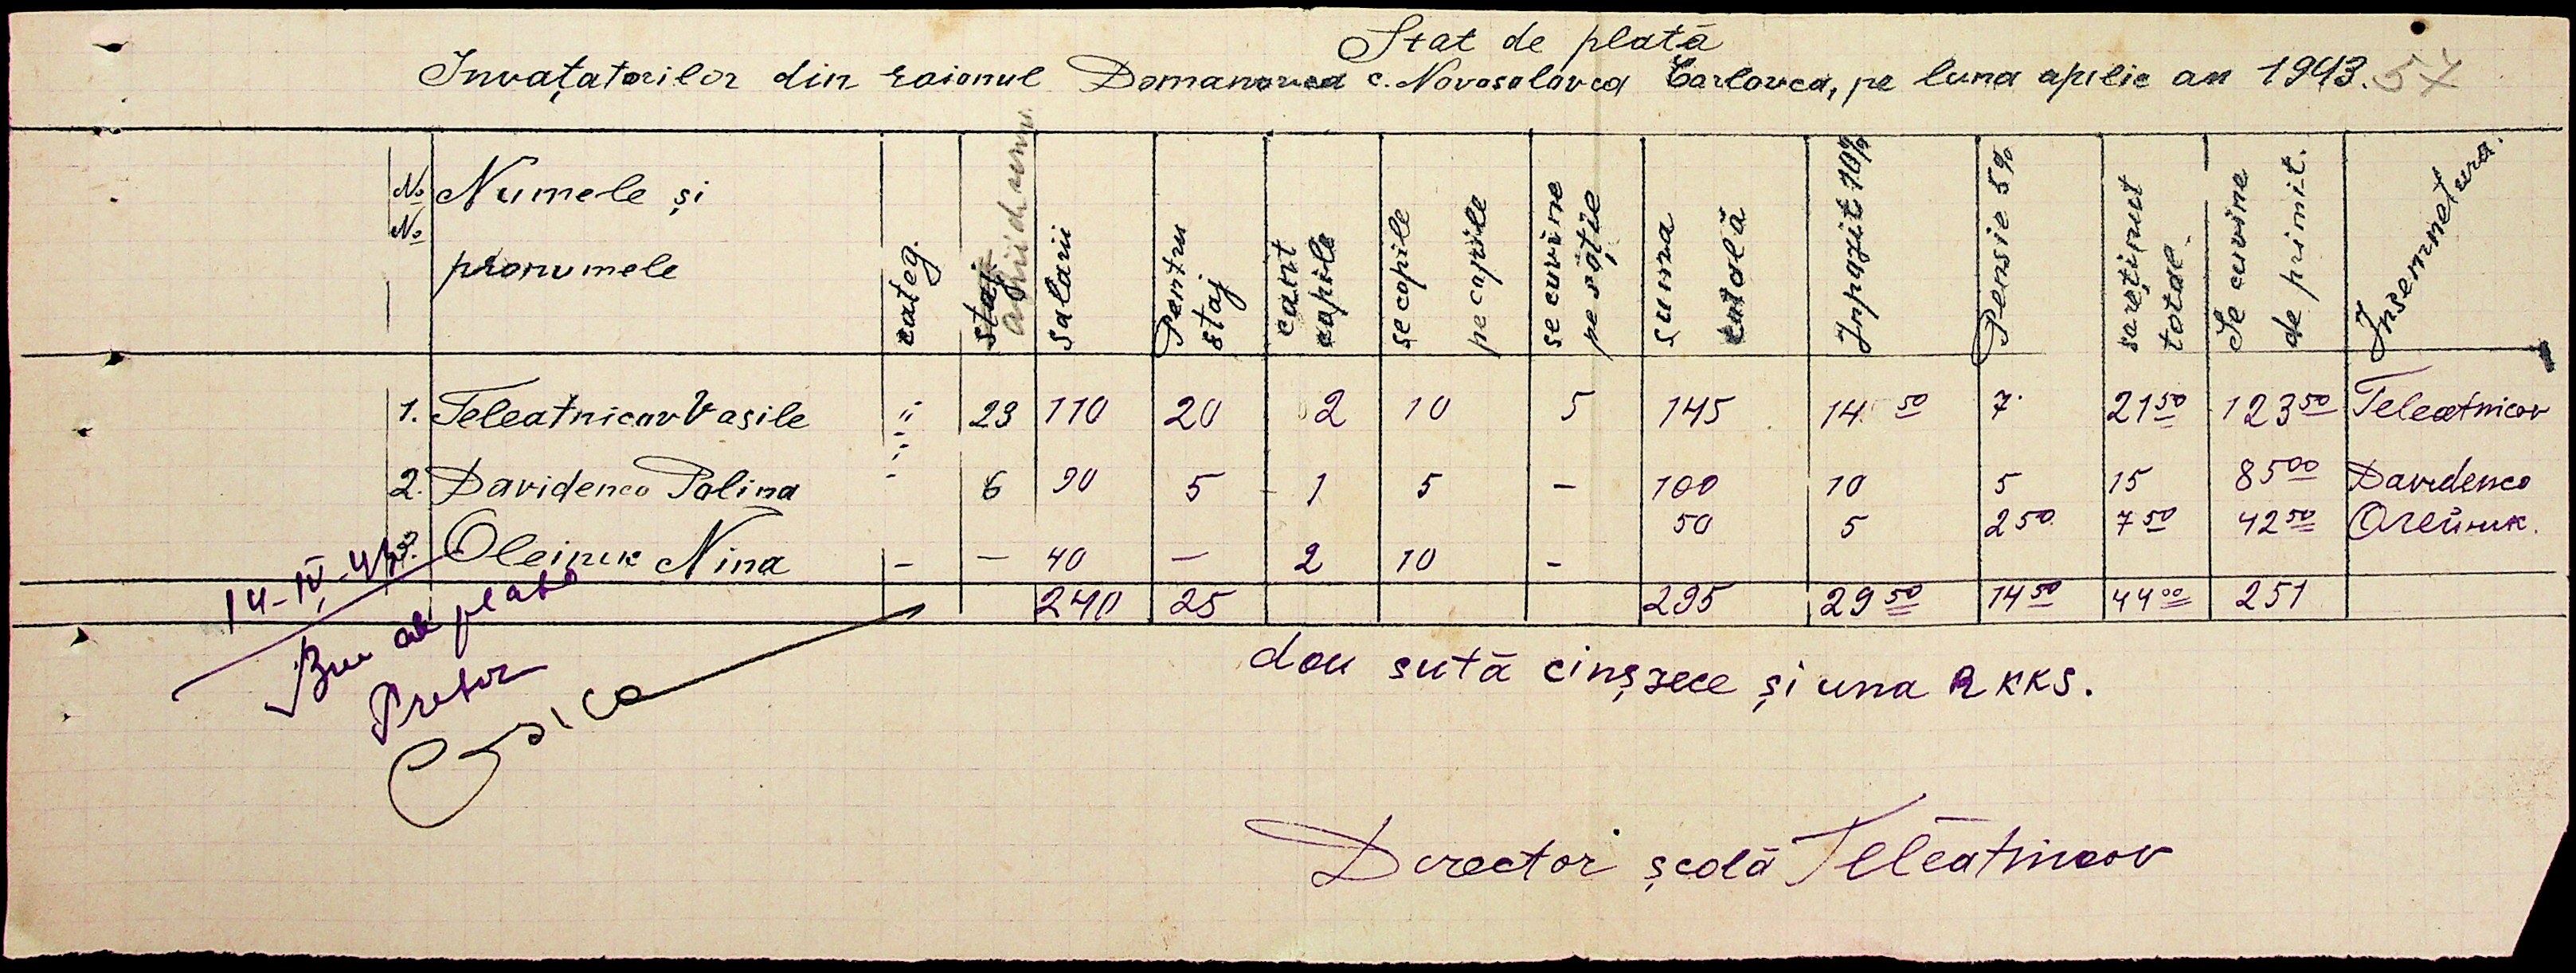 Stat de plată
Invațatorilor din raionul Domanovca c. Novosolovca Carlovca, pe luna aprilie an 1943. 57
№ № Numele și pronumele categ. staj salarii Pentru staj cant copile se copile pe copile se cuvine pe soție suma totală Inpozit 10% Pensie 5% sareținut totae. Se cuvine de primit. Insemnetura.
1. Teleatnicov Vasile " 23 110 20 2 10 5 145 14 50 7 21 50 123 50 Teleatnicov
2. Davidenco Polina - 6 90 5 1 5 - 100 10 5 15 85 00 Davidenco
3. Oleinik Nina - - 40 - 2 10 - 50 5 2 50 7 50 42 50 Олейник.
240 25 295 29 50 14 50 44 00 251
14-IV-43
Bun de plata
Pretor
dou sută cinșzece și una RKKS.
Director școlă Teleatnicov